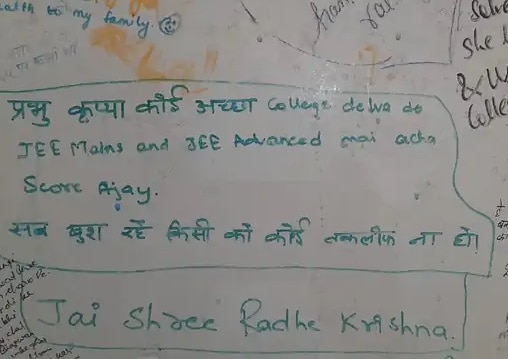 alth to my family.
प्रभु कृप्या कोई अच्छा College delva do
JEE Mains and JEE Advanced mai acha
Score Ajay.
सब खुश रहें किसी को कोई तकलीफ ना हो।
Jai Shree Radhe Krishna.
she